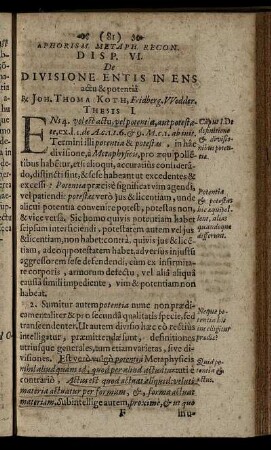 (81)
APHORISM. METAPH. RECON.
DISP. VI.
De
DIVISIONE ENTIS IN ENS
actu & potentiâ
R. JOH. THOMA KOTH, Fridberg.
THESIS I.
ENs vel est actu, vel potentiâ, aut potesta-
te,
Termini isti potentia & potestas, in hâc
divisione, à Metaphysicis, pro
habetur, etsi aliôqui, accuratiùs conside-
do, distincti sint, & sese habeant ut excedentes &
excessi: Potentia præcisè significat vim agendi,
vel patiendi: potestas verò jus & licentiam, unde
alicui potentia convenire potest, potestas non,
& vice versa. Sic homo quivis potentiam habet
seipsum interficiendi, potestatem autem vel jus
& licentiam, non habet: contrà, quivis jus & licen-
tiam, adeoq; potestatem habet, adversus injustũ
aggressorem sese defendendi, cum ex infirmita-
te corporis, armorum defectu, vel aliâ aliquâ
caussâ simili impediente, vim & potentiam non
habeat.
2. Sumitur autem potentia nunc non prædi-
camentaliter & pro secunda qualitatis specie, sed
transcendenter. Ut autem divisio hæc eò rectiùs
intelligatur, præmittendæ sunt, definitiones
utriusque generales, tum etiam varietas, sive di-
visiones. Est verò vulgò potentia Metaphysicis
nihil aliud quàm id, quod per aliud actuatur: uti è
contrariò, Actus est quod actuat aliquid: veluti
materia actuatur per formam, &, forma actuat
materiam. Subintellige autem, proximè, & ut quo
F
Potentia
& potestas
differunt.
tentia &
actus.